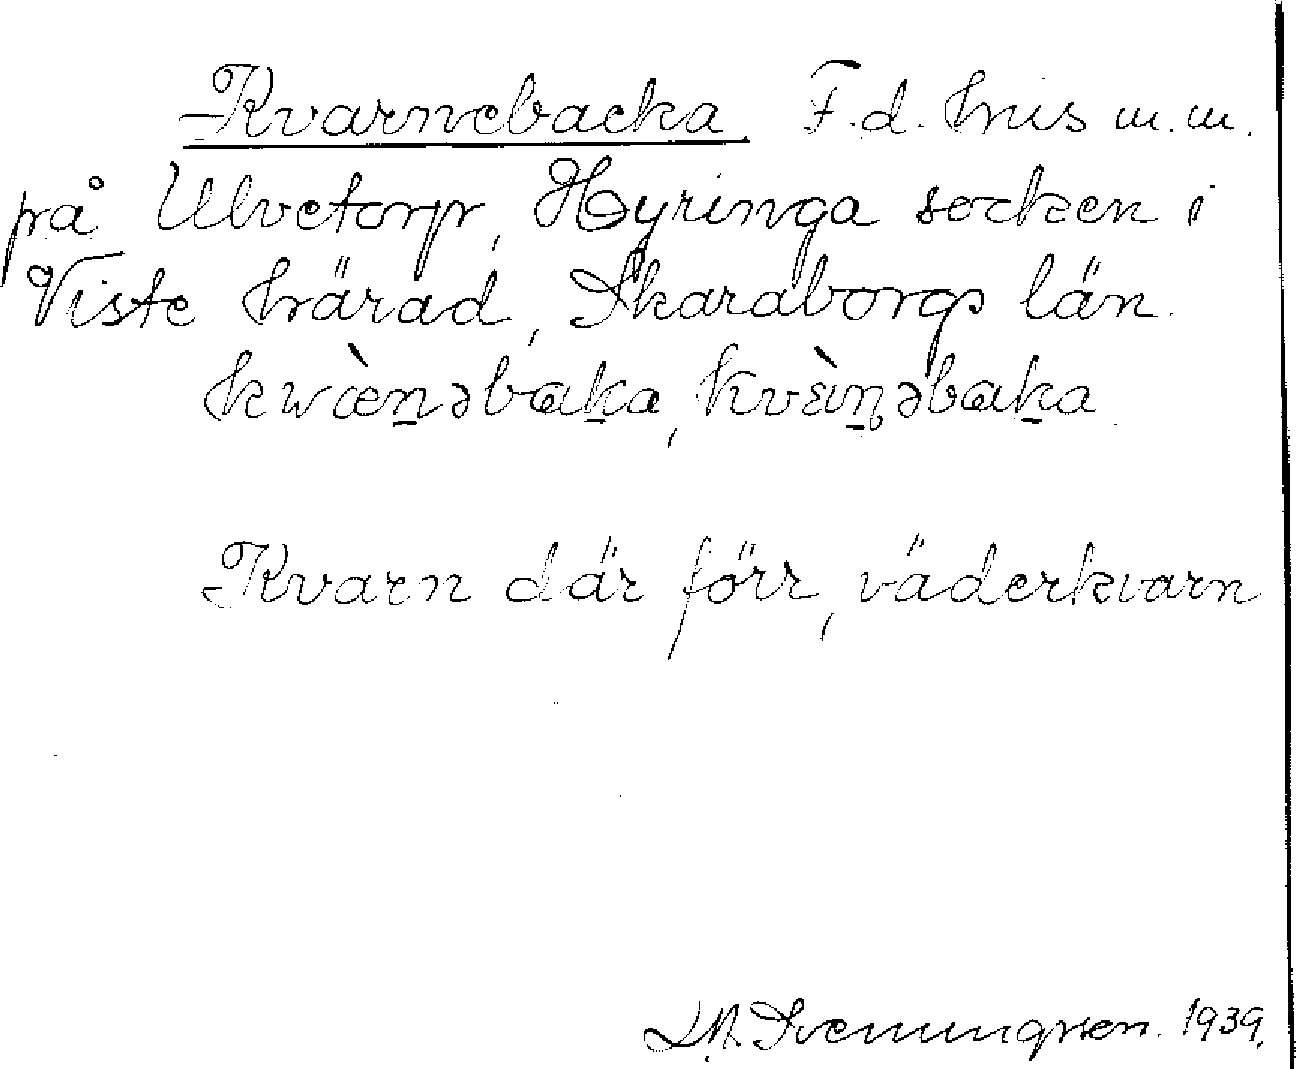 Kvarnebacka. F.d. hus m.m.
på Ulvetorp, Hyringa socken i
Viste härad, Skaraborgs län.
kwæ̀n̠əbak̠a, kvæ̀n̠əbak̠a
Kvarn där förr, väderkvarn
Svenungsson. 1939.